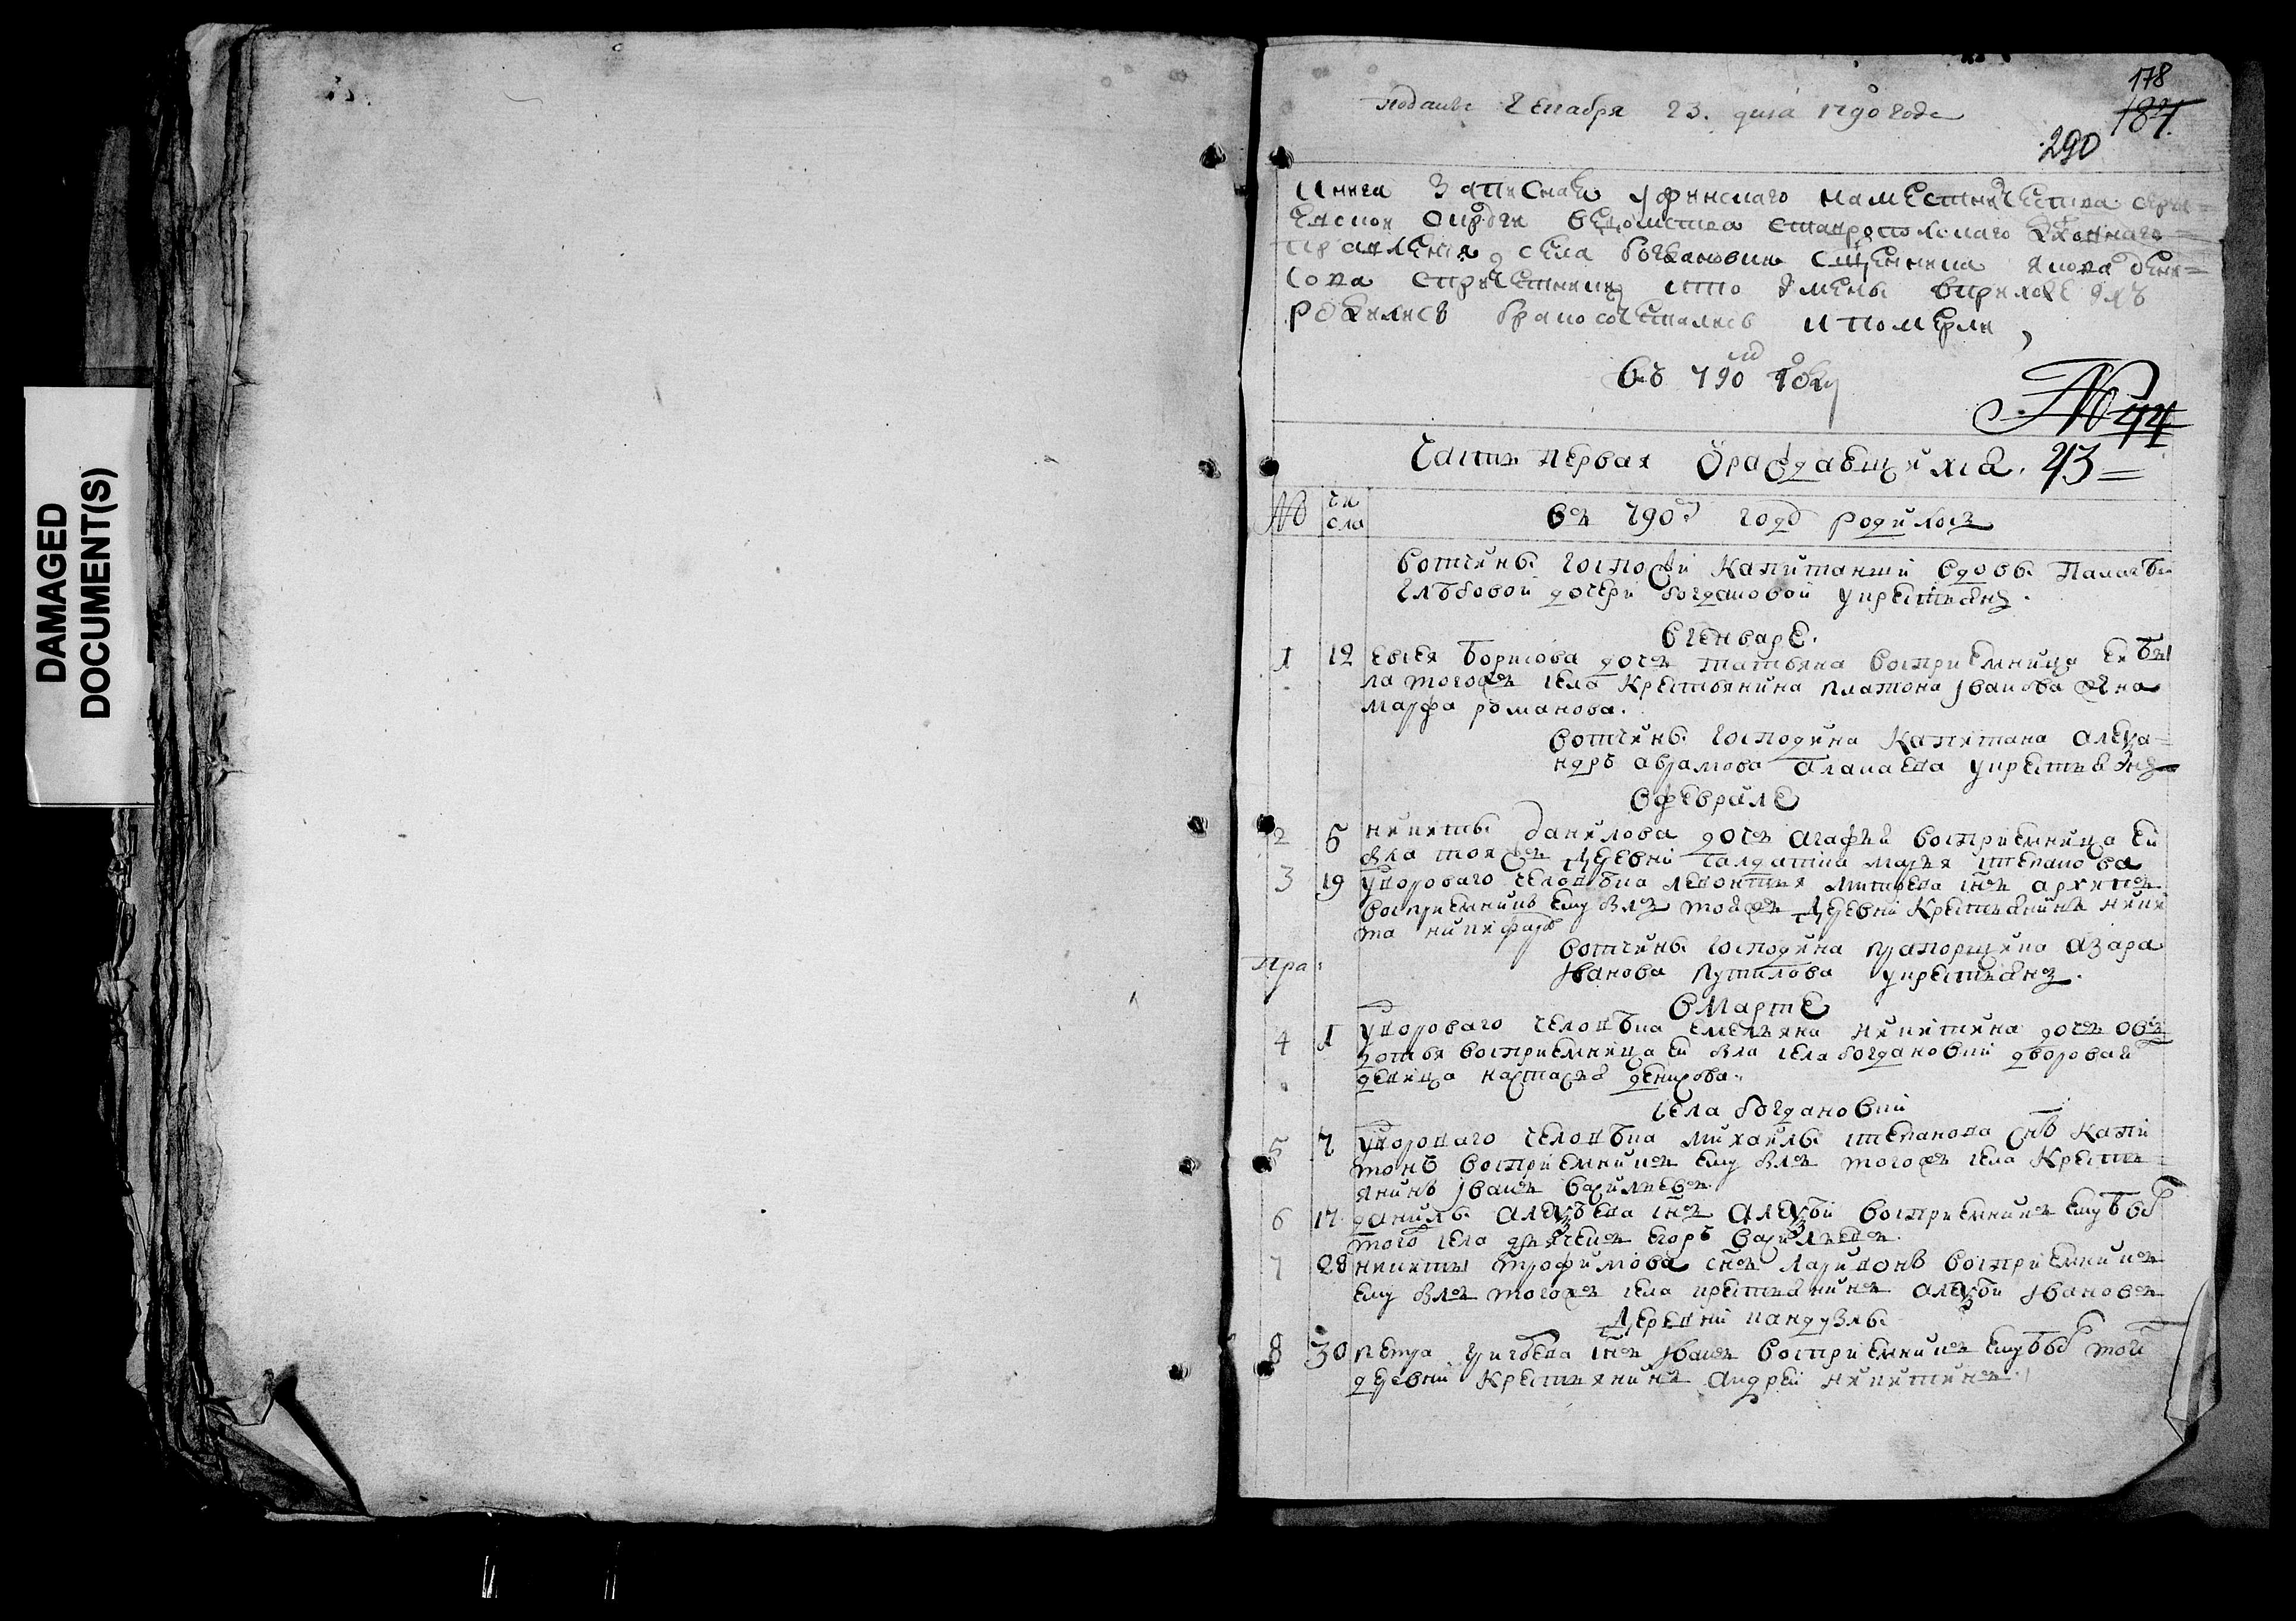 DAMAGED
DOCUMENT(S)
178
187.
290
Поданы декабря 23. дня 1790 года
Книга записная уфинскаго наместничества орен=
бургской округи ведомства ставропольскаго духовнаго
правления села богдановки священника якова дени=
сова спричетники кто имены вприходе ихъ
родились бракосочетались и померли
въ 790м году
№ 44
43
Часть первая ораждающихся.
№ числа
въ 790м годъ родилось
вотчины госпожи капитанши вдовы Палагѣи
глѣбовой дочери богдановой укрестьянъ.
вгенваре.
1 12 евсея борисова дочь татьяна восприемница ей бы
ла тогожъ села крестьянина платона иванова жена
марфа романова.
вотчины господина капитана алекса=
ндръ аврамова укрестьянъ
вфеврале
2 5 никиты данилова дочь агафья восприемница ей
была тояжъ деревни салдатка марья степанова
3 19 удвороваго человѣка леонтия сынъ архипъ
восприемникъ ему былъ тойжъ деревни крестьянинъ ники
та никифоръ
вотчины господина прапорщика азара
Пра:
иванова путилова укрестьянъ.
вмарте
4 1 удвороваго человѣка емельяна никитина дочь ов
дотья восприемница ей была села богдановки дворовая
девица настасья денисова.
села богдановки
5 7 удвороваго человѣка михайлы степанова снъ капи
тонъ восприемникъ ему былъ тогожъ села кресть=
янинъ иванъ васильевъ
6 17 данилы алексѣева снъ алексѣй восприемникъ ему бы
того села дьячекъ егоръ васильевъ.
7 28 никиты трофимова снъ ларионъ восприемникъ
ему былъ тогожъ села крестьянинъ алексѣй ивановъ
деревни кандузлы
8 30 петра григорьева снъ иванъ восприемникъ ему бы той
деревни крестьянинъ андрей никитинъ.